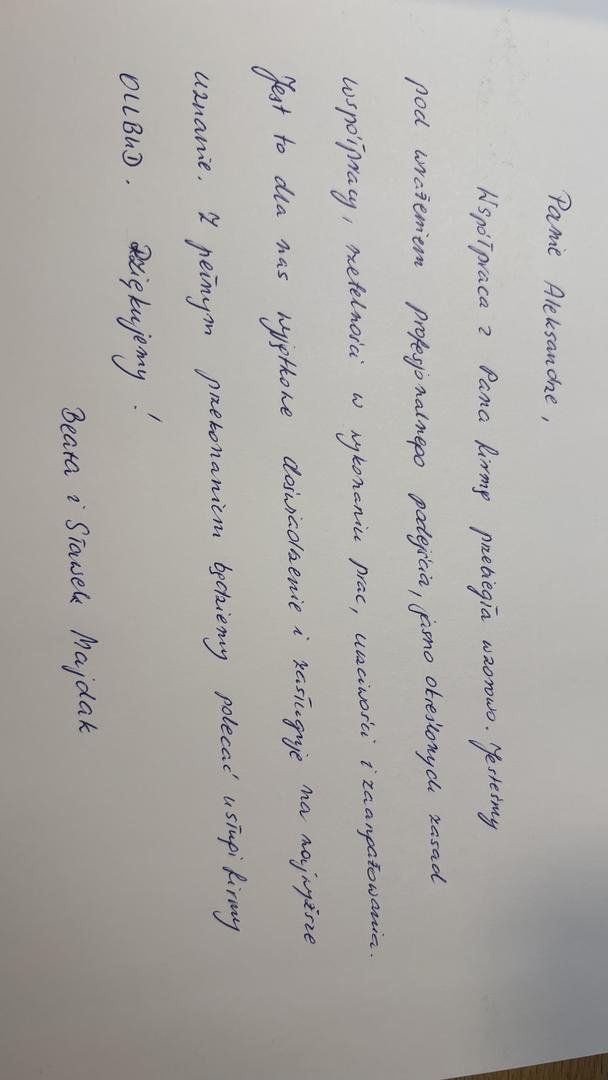 Panie Aleksandrze,
Współpraca z Pana firmą przebiegła wzorowo. Jesteśmy
pod wrażeniem profesjonalnego podejścia, jasno określonych zasad
współpracy, rzetelności w wykonaniu prac, uczciwości i zaangażowania.
Jest to dla nas wyjątkowe doświadczenie i zasługuje na najwyższe
uznanie. Z pełnym przekonaniem będziemy polecać usługi firmy
OLLBUD. Dziękujemy!
Beata i Sławek Majdak